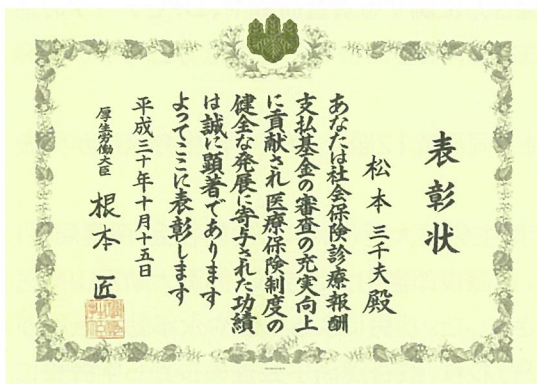 表彰状
松本三千夫殿
あなたは社会保険診療報酬
支払基金の審査の充実向上
に貢献され医療保険制度の
健全な発展に寄与された功績
は誠に顕著であります
よってここに表彰します
平成三十年十月十五日
厚生労働大臣 根本匠